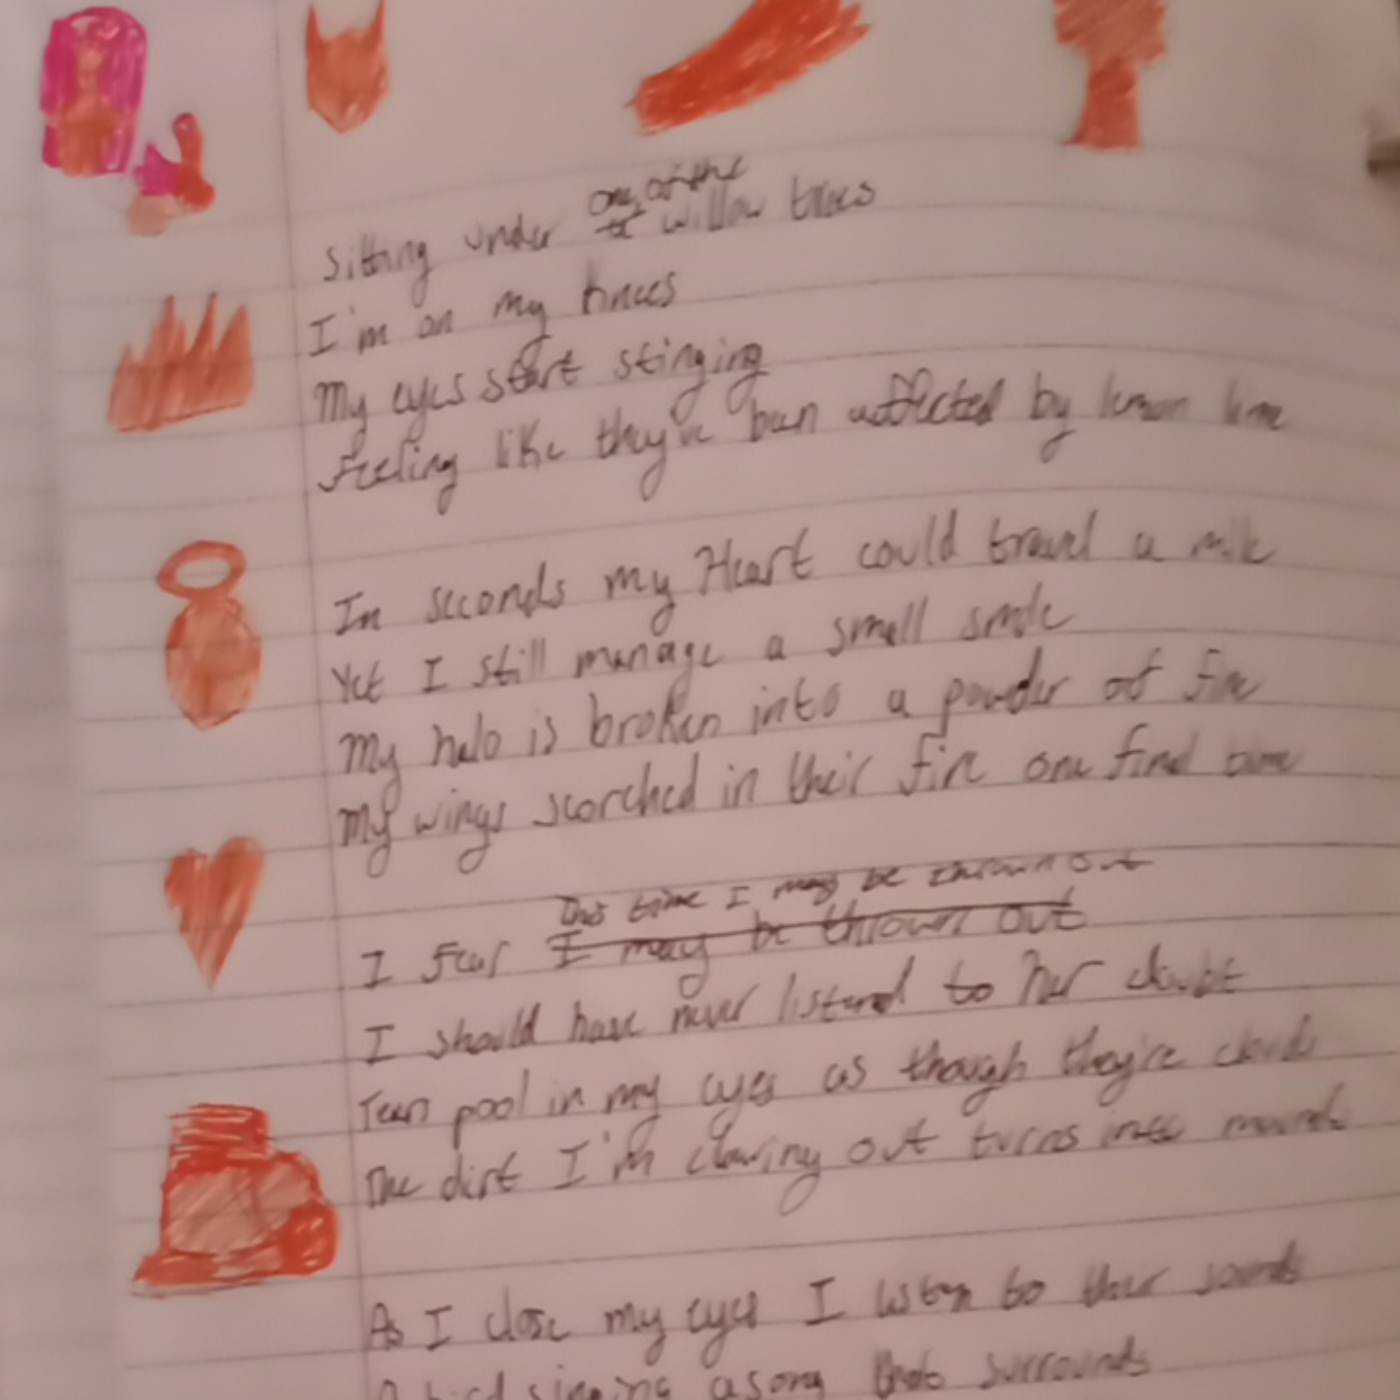 one of the
Sitting under willow trees
I'm on my knees
My eyes start stinging
Feeling like they've been affected by lemon lime
In seconds my Heart could travel a mile
Yet I still manage a small smile
My halo is broken into a powder of fine
My wings scorched in their fire one final time
This time I may be thrown out
I fear I may be thrown out
I should have never listened to her doubt
Tears pool in my eyes as though they're clouds
The dirt I'm clawing out turns into mounds
As I close my eyes I listen to their sounds
A bird singing a song that surrounds